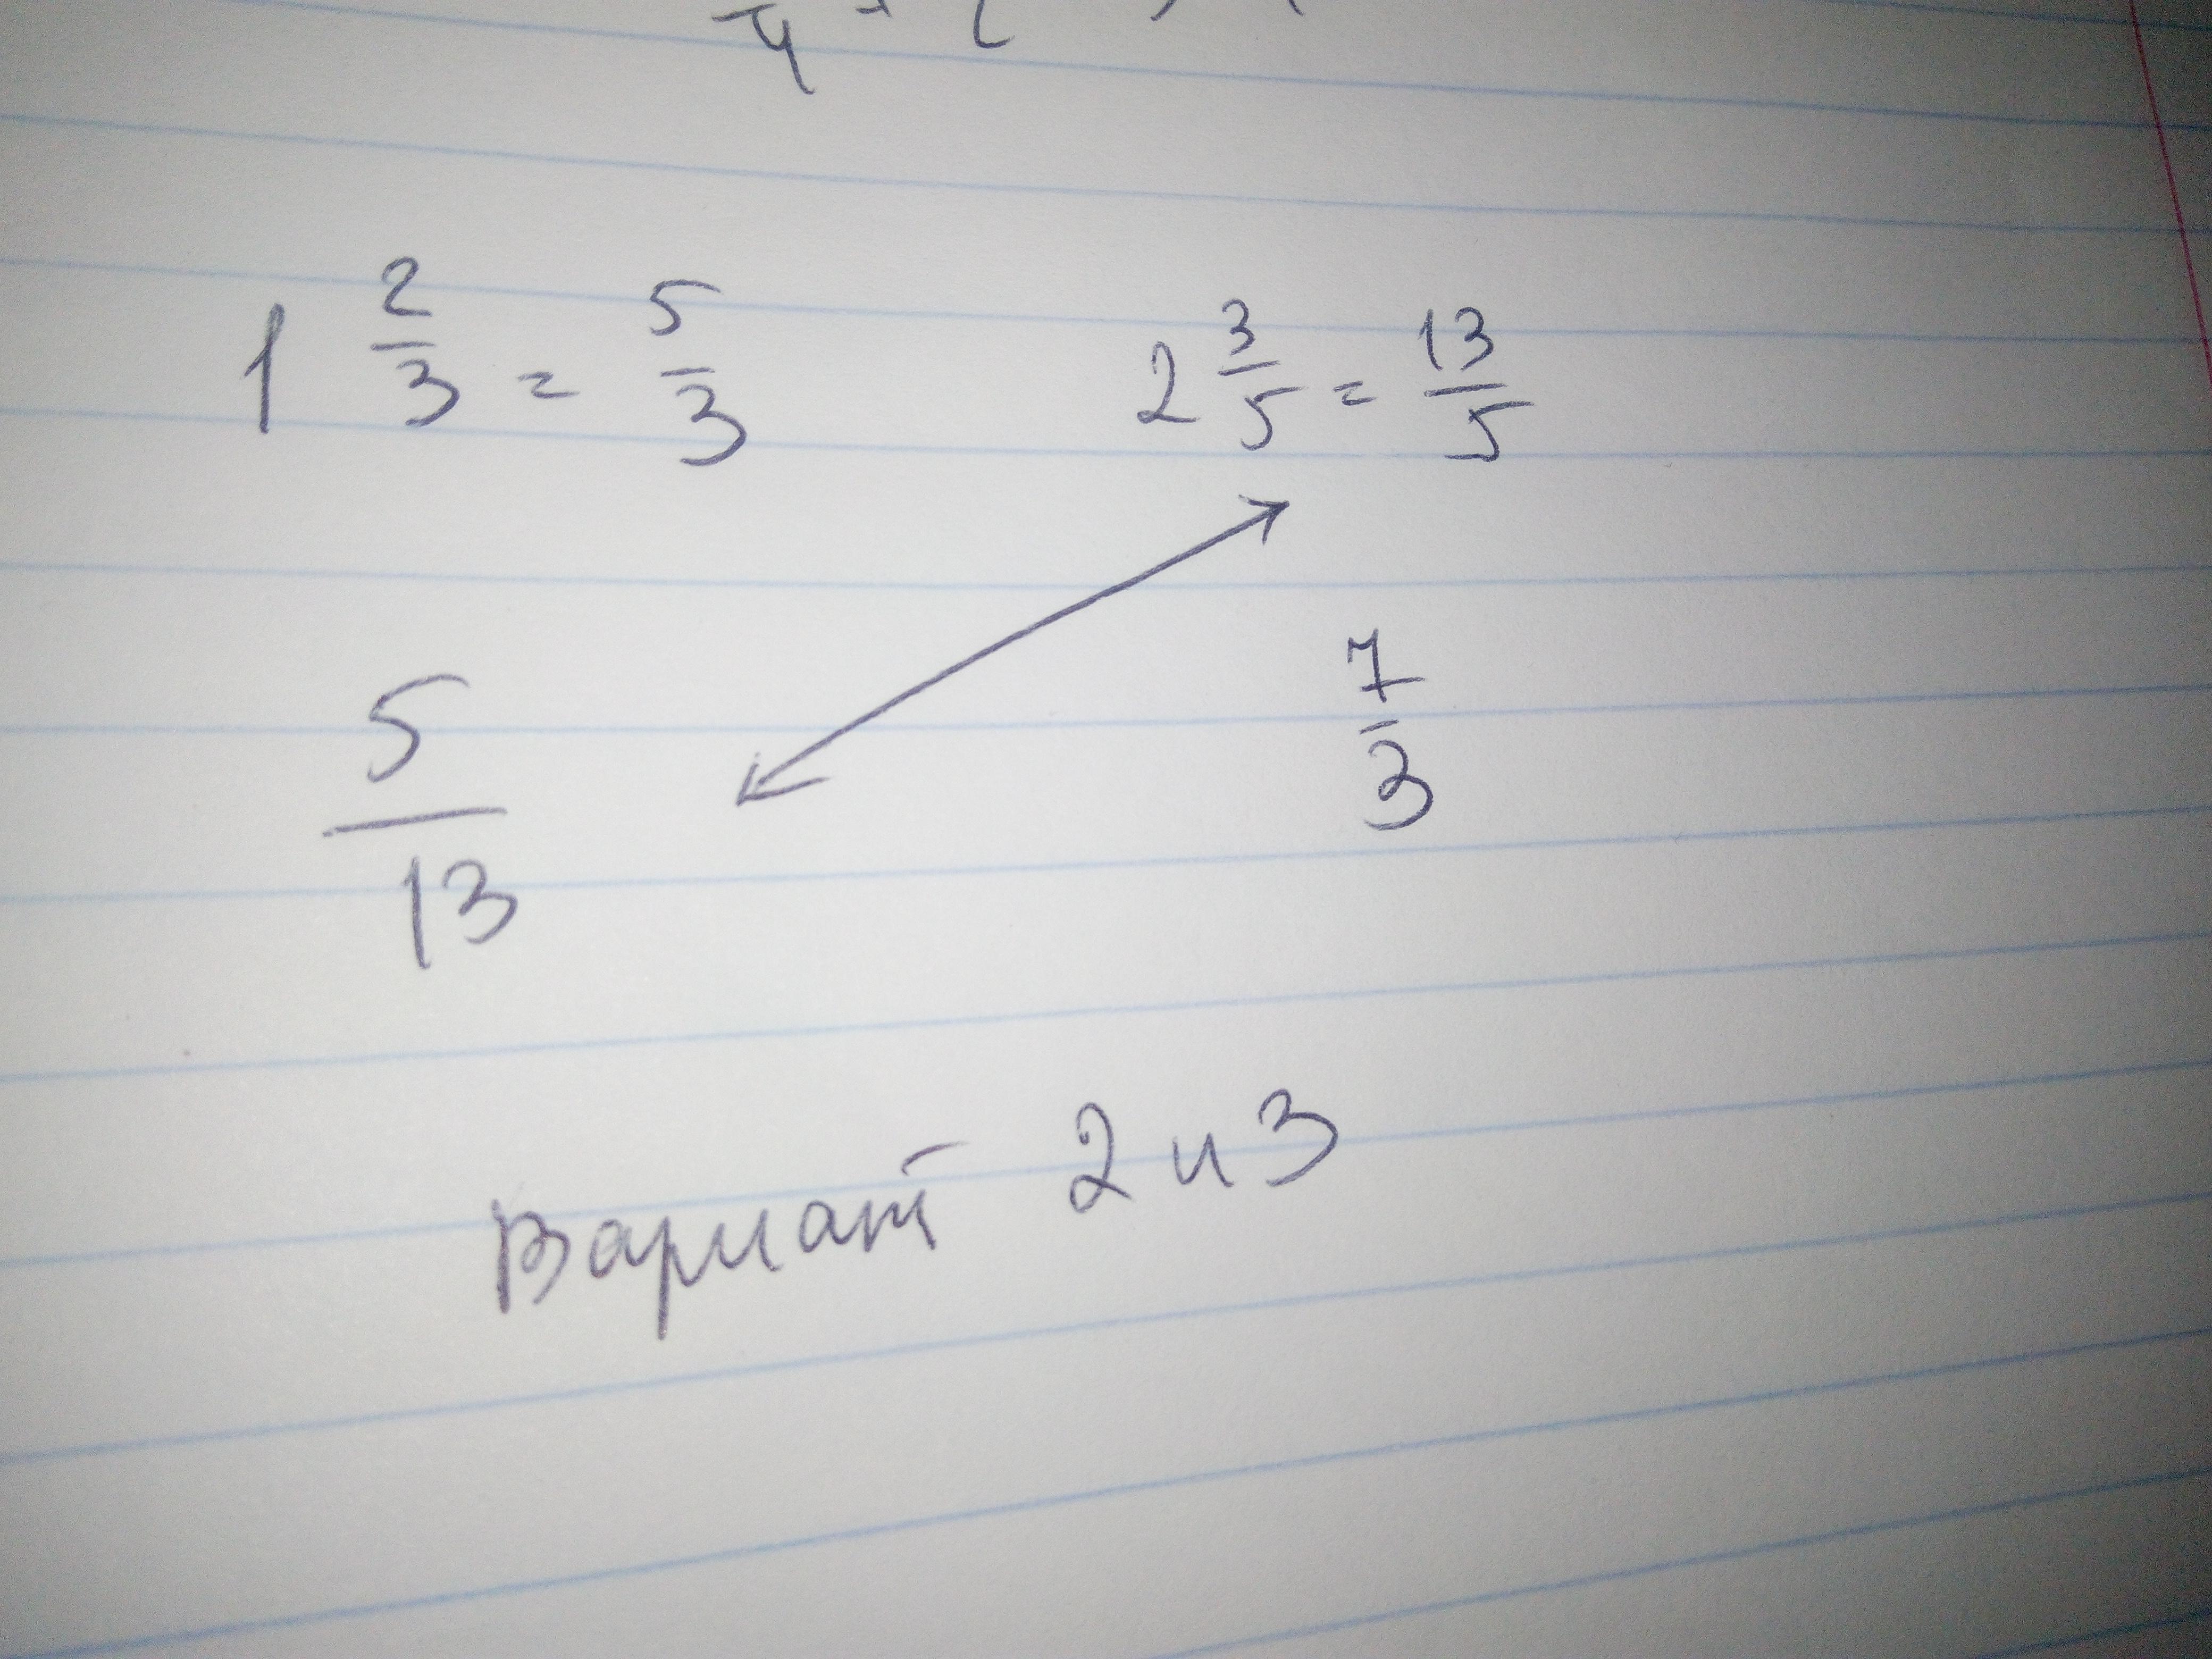 1 2/3 = 5/3 2 3/5 = 13/5
5/13 7/3
Вариат 2 и 3